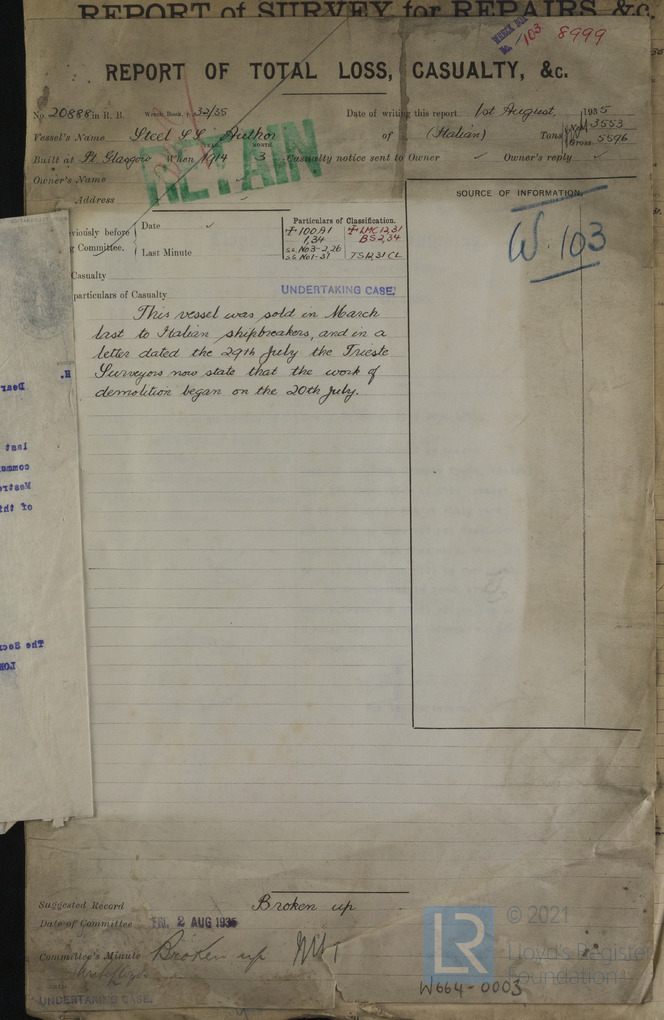 REPORT of SURVEY for REPAIRS, &c.
WRECK BOX
No. 103 8999
REPORT OF TOTAL LOSS, CASUALTY, &c.
No. 20888 in R. B. Wreck Book, p. 32/35 Date of writing this report 1st August, 1935
Vessel's Name Steel SS Author of (Italian) Tons Net 3553
Gross 5596
YEAR MONTH
Built at Pt. Glasgow When 1914 3 Casualty notice sent to Owner ✓ Owner's reply ✓
RETAIN
Owner's Name
Address
SOURCE OF INFORMATION.
W. 103
viously before
Committee.
Date ✓
Last Minute
Particulars of Classification.
✠ 100A1 ✠ LMC 12,31
1,34 BS 2,34
SS. No3-2,26
SS. No1-31 TS 12,31 CL
Casualty
particulars of Casualty
UNDERTAKING CASE.
This vessel was sold in March
last to Italian shipbreakers, and in a
letter dated the 29th July the Trieste
Surveyors now state that the work of
demolition began on the 20th July.
H.
Dear
last
commu
Mestre
of thi
The Secr
LON
Suggested Record Broken up
Date of Committee FRI. 2 AUG 1935
Committee's Minute Broken up
UNDERTAKING CASE.
LR
© 2021
Lloyd's Register
Foundation
W664-0003